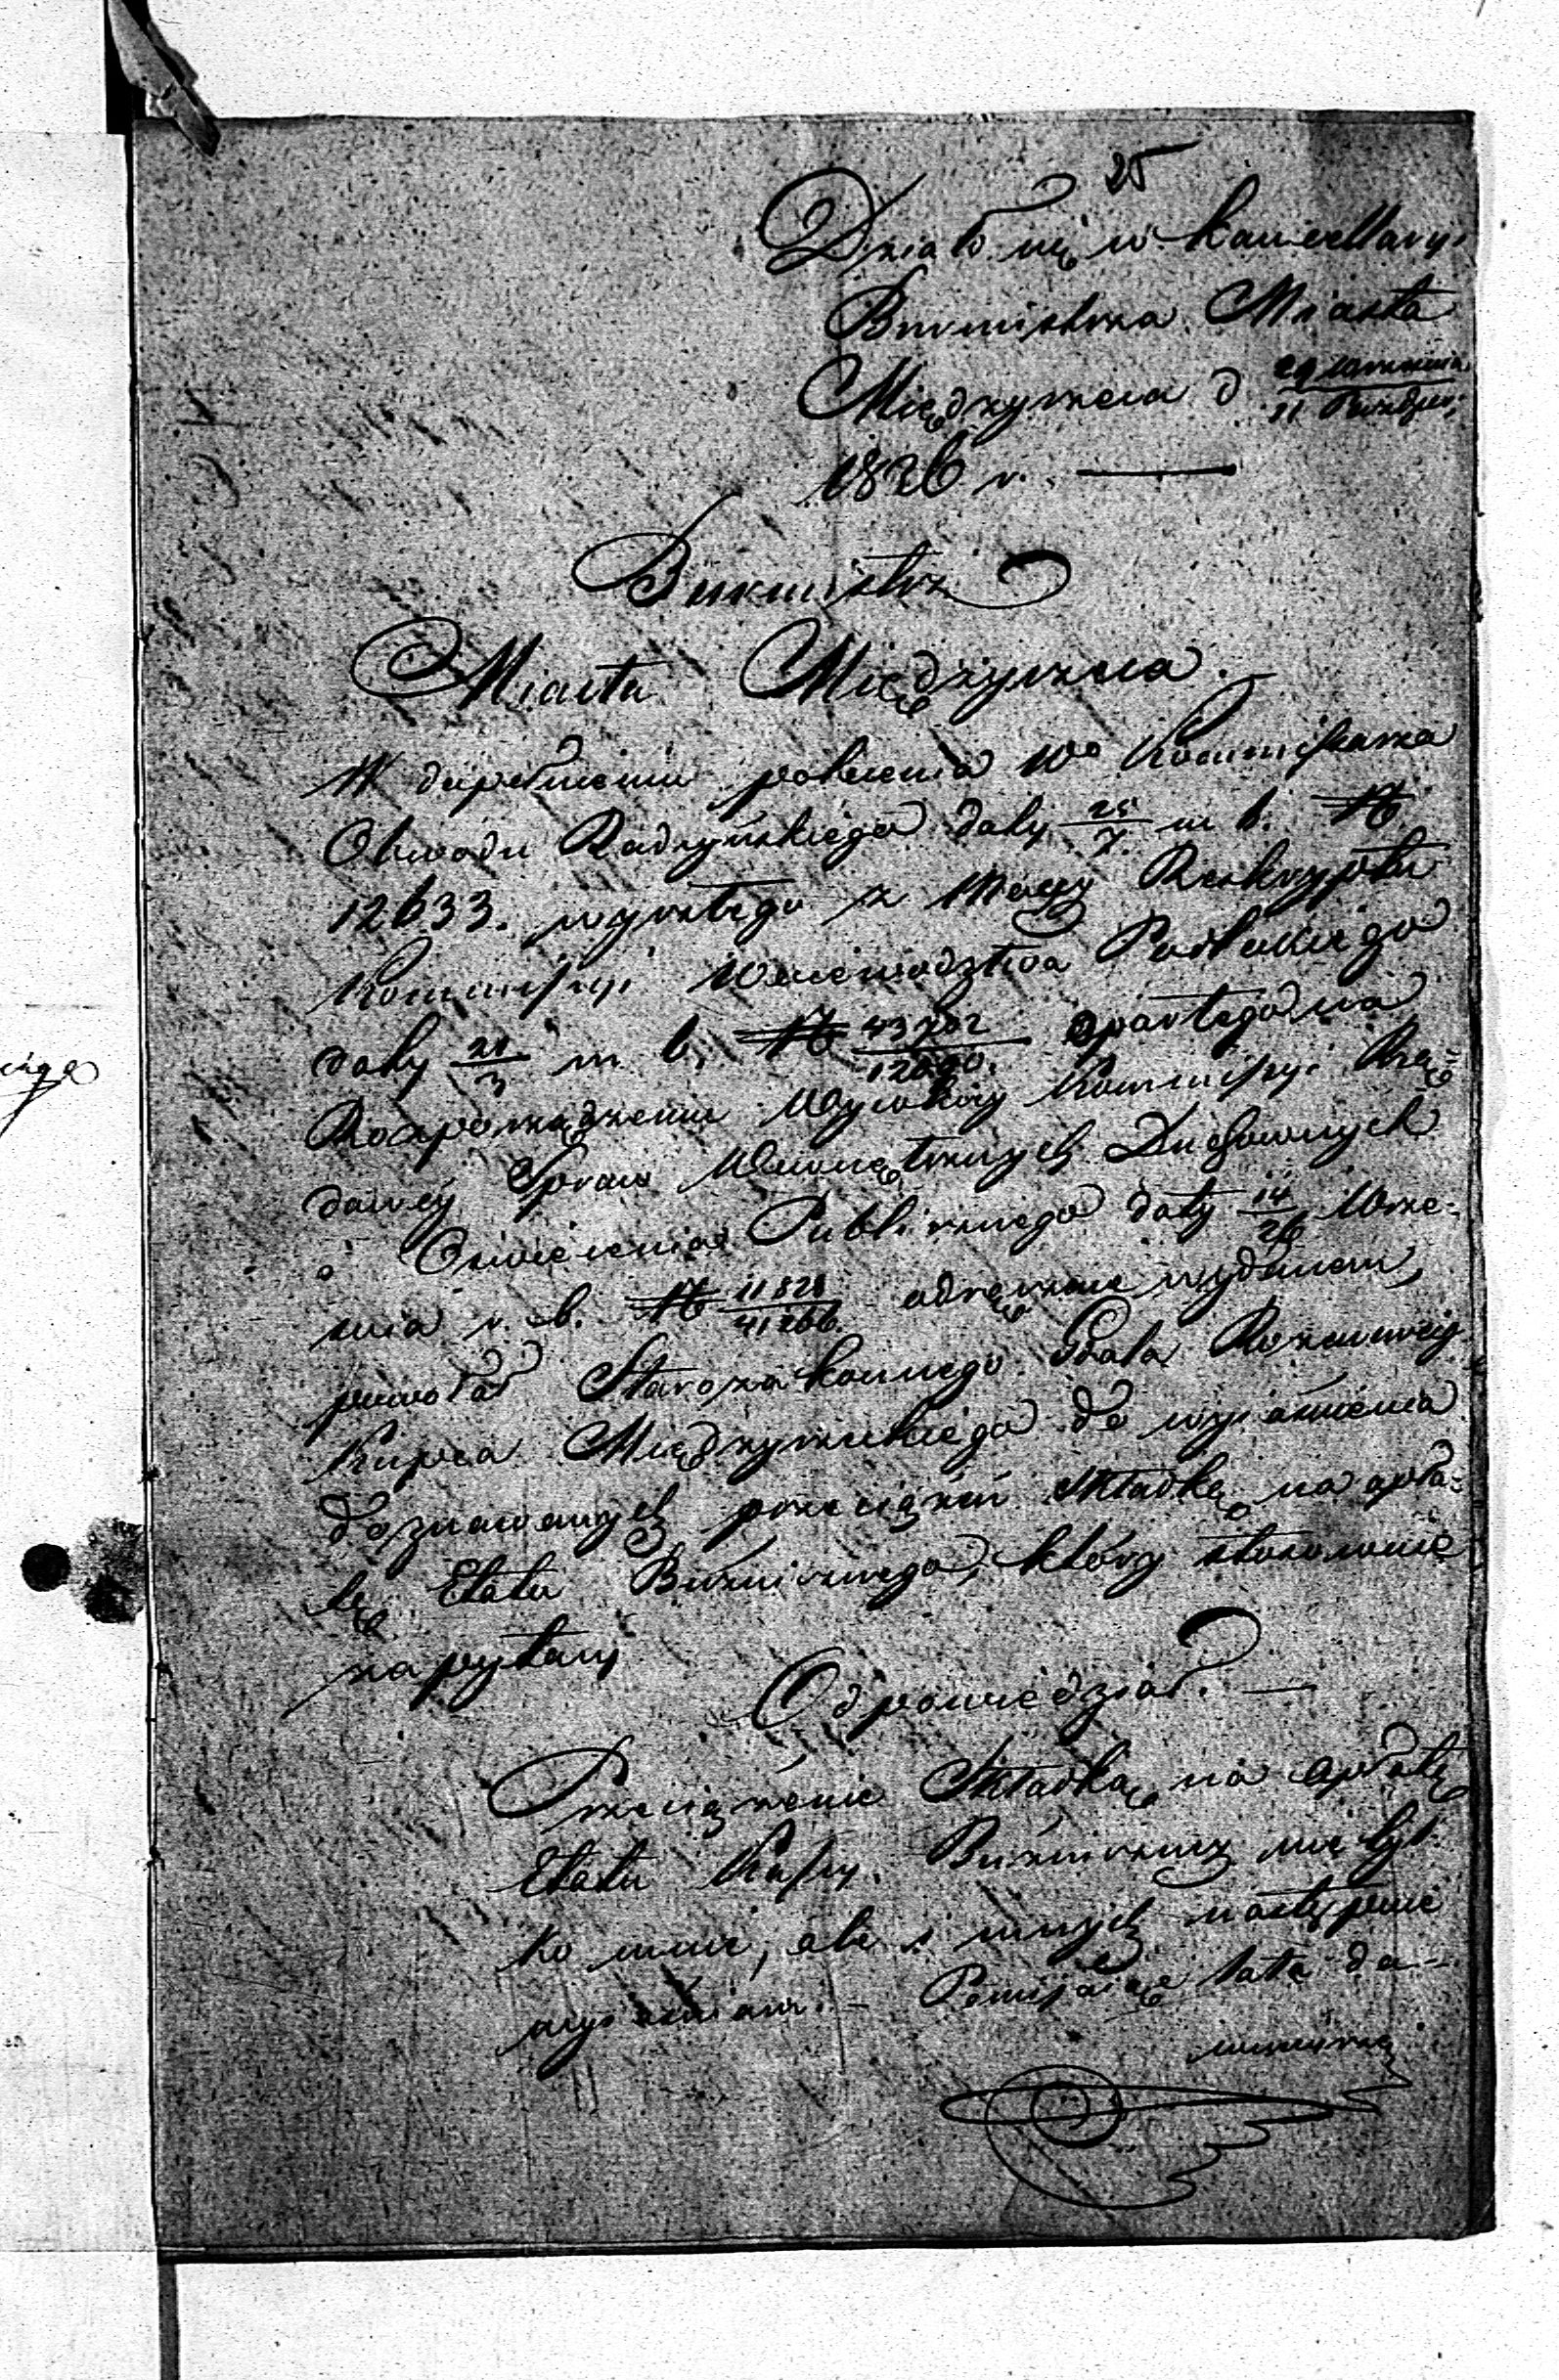 25
Działo się w Kancellaryi
Burmistrza Miasta
Międzyrzeca d 29 Września / 11 Paździer:
1826 r.
Burmistrz
Miasta Międzyrzeca.
W dopełnieniu polecenia Wo Kommissarza
Obwodu Radzyńskiego daty 25/7 m b. N
12633. wyszłego z Mocy Reskryptu
Kommissyi Województwa Podlaskiego
daty 21/3 m. b. N 43702/12690. opartego na
Rozporządzeniu Wysokiey Kommissyi Rzą-
dowey Spraw Wewnętrznych Duchownych
i Oświecenia Publicznego daty 14/26 Wrze-
śnia r. b. N 11828/41266. odręcznie wydanem,
powołał Starozakonnego Rozenweig
Kupca Międzyrzeckiego do wyiaśnienia
doznawanych przeciążeń składką na opła-
tę Etatu Bużnicznego, który stosownie
zapytany
Odpowiedział. —
Przeciążenie Składką na opłatę
Etatu Kassy Bużniczney nie tyl-
ko mnie, ale i innych następnie
wyiaśniam. — Pomijaiąc lata da-
wnieysze